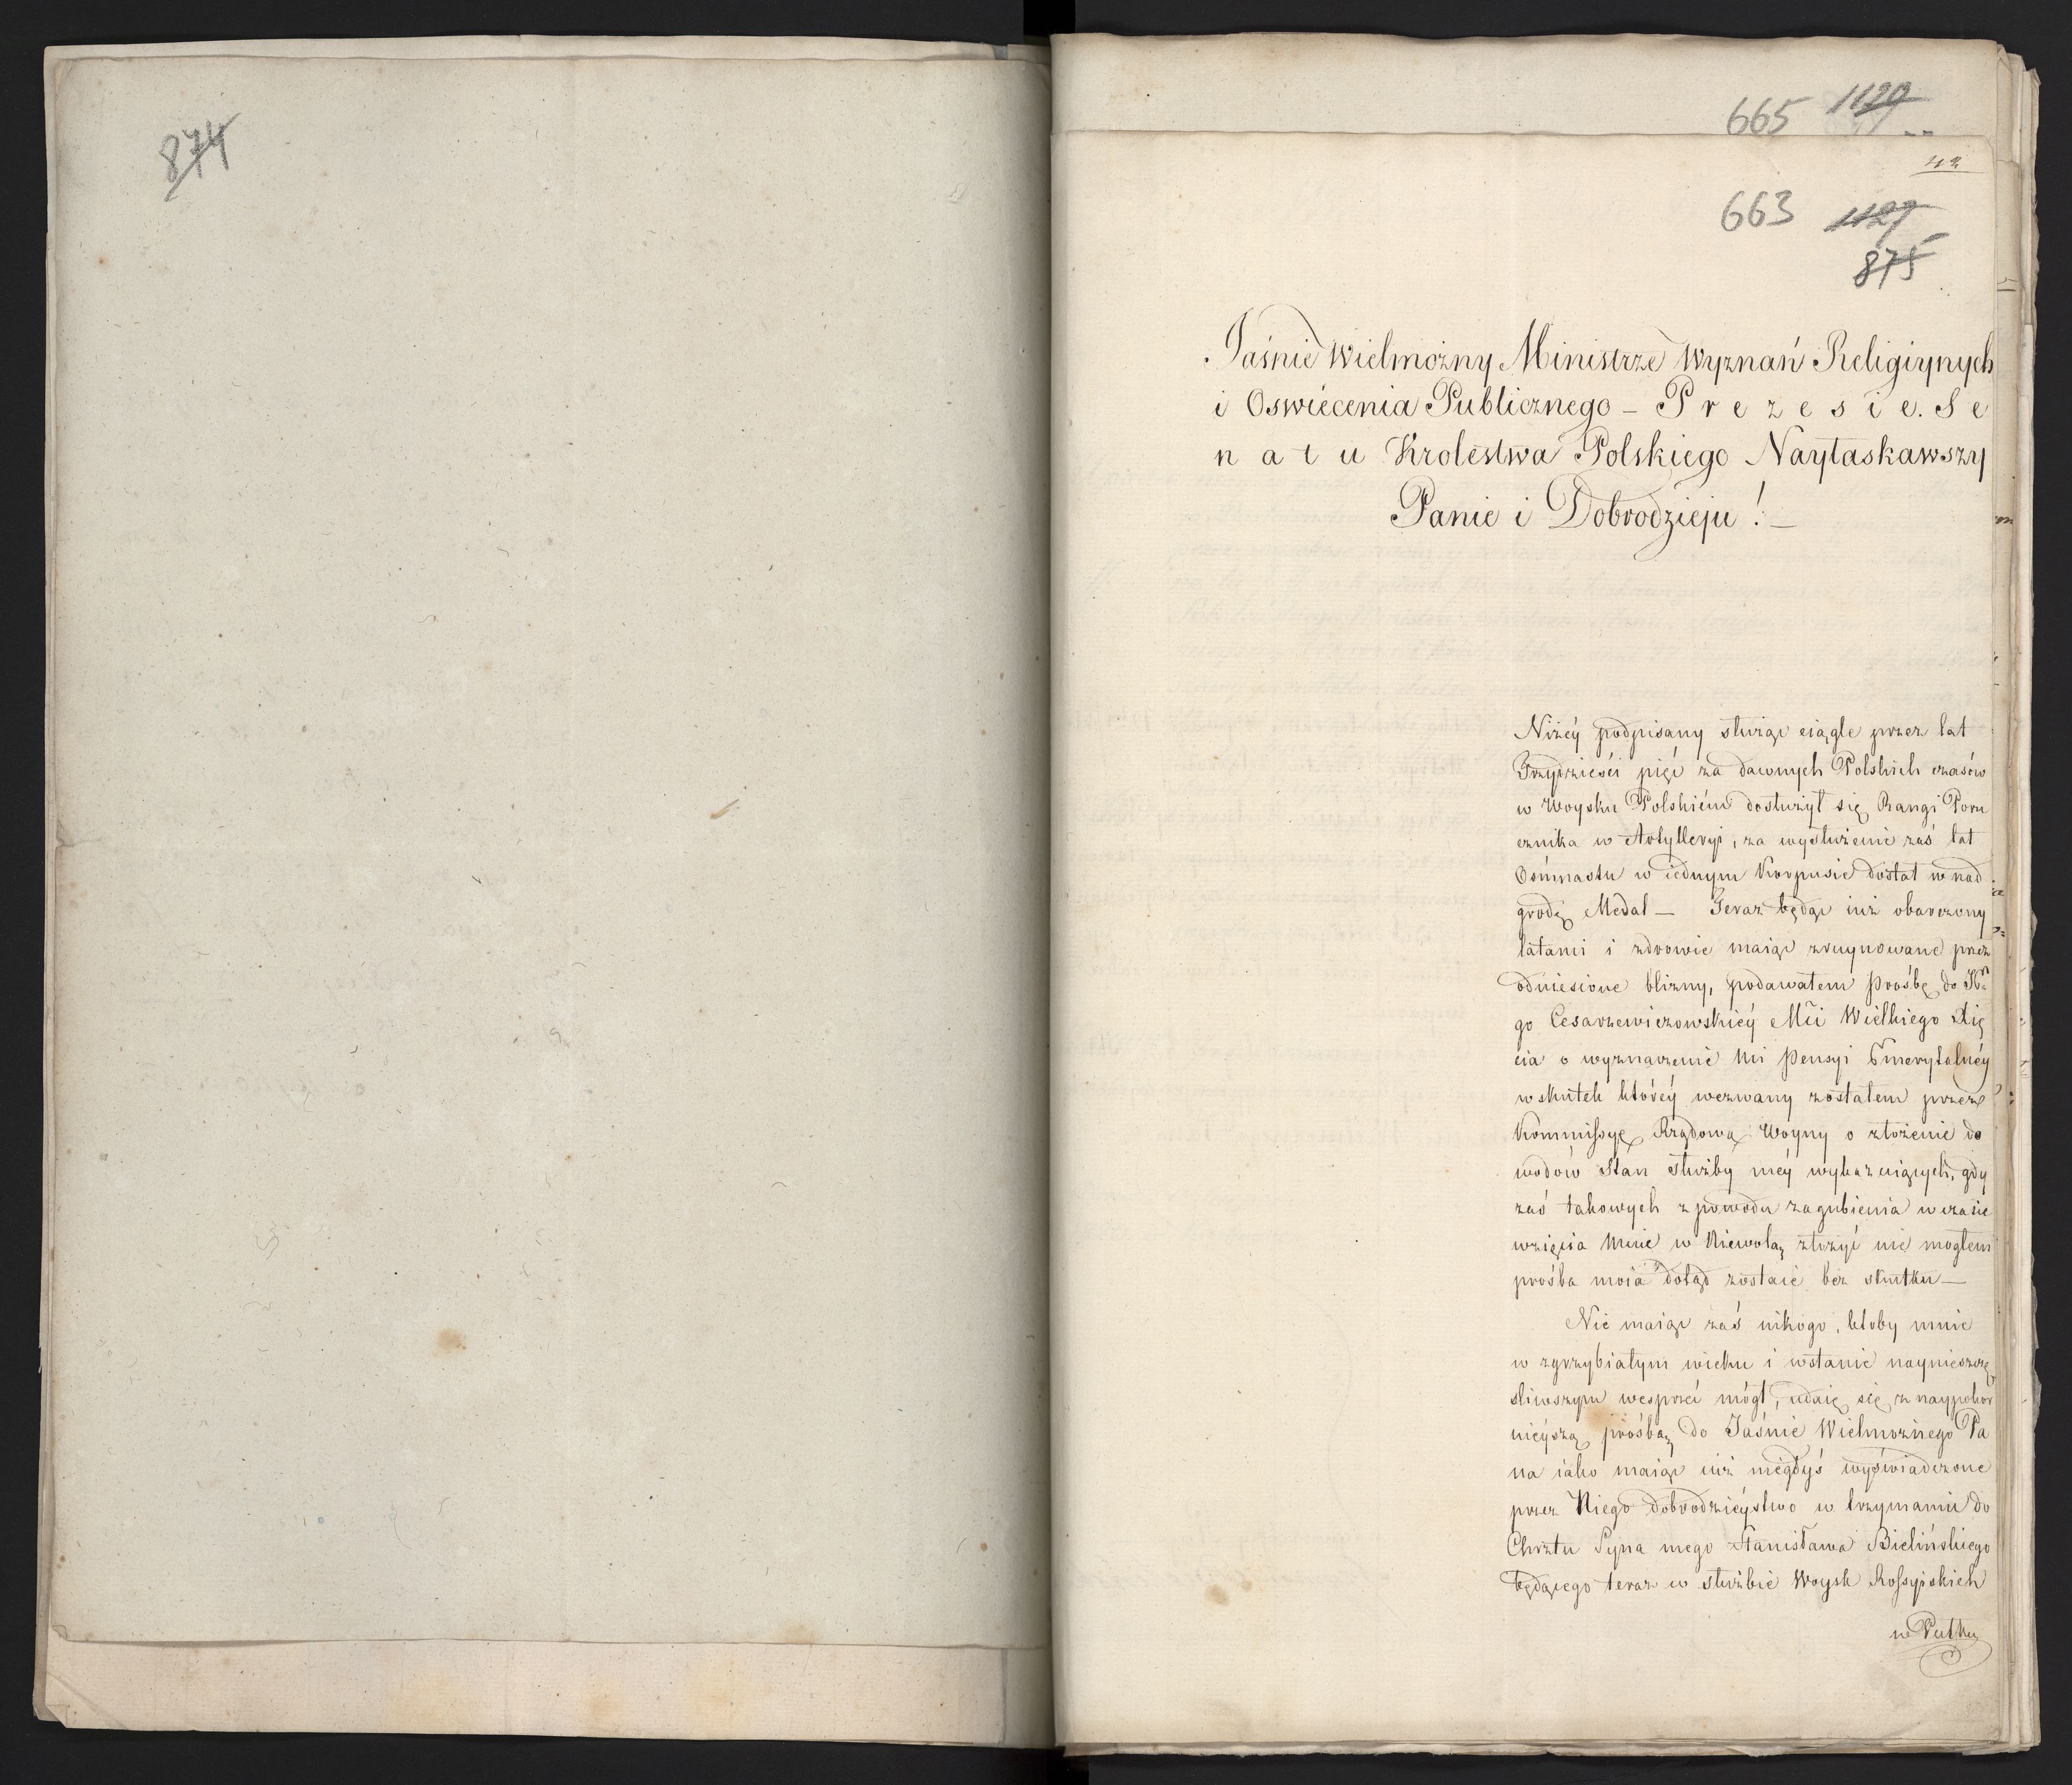 874
665 1129
42
663 1127
875
Jaśnie Wielmożny Ministrze Wyznań Religiynych
i Oswiécenia Publicznego – P r e z e s i e. S e
n a t u Krolestwa Polskiego Nayłaskawszy
Panie i Dobrodzieju! –
Niżéy podpisany służąc ciągle przez lat
Trzydzieści pięć za dawnych Polskich czasów
w Woysku Polskiém dosłużył się Rangi Poru
cznika w Artylleryi, za wysłużenie zaś lat
Ośmnastu w iednym Korpusie dostał w nad
grodę Medal — Teraz będąc iuż obarczony
latami i zdrowie maiąc zruynowane przez
odniesione blizny, podawałem Prośbę do
go Cesarzewiczowskiéy Mći Wielkiego Xię
cia o wyznaczenie mi Pensyi Emerytalnéy
w skutek któréy wezwany zostałem przez
Kommissyę Rządową Woyny o złożenie do
wodów Stan służby méy wykazuiących, gdy
zaś takowych z powodu zagubienia w czasie
wzięcia mnie w Niewolą złożyć nie mogłem
prośba moia dotąd zostaie bez skutku —
Nie maiąc zaś nikogo, ktoby mnie
w zgrzybiałym wieku i w stanie naynieszczę
śliwszym wesprzeć mógł, udaię się z naypokor
nieyszą prośbą do Jaśnie Wielmożnego Pa
na iako maiąc iuż niegdyś wyświadczone
przez Niego dobrodzieystwo w trzymaniu do
Chrztu Syna mego Stanisława Bielińskiego
będącego teraz w służbie Woysk Rossyiskich
w Pułku